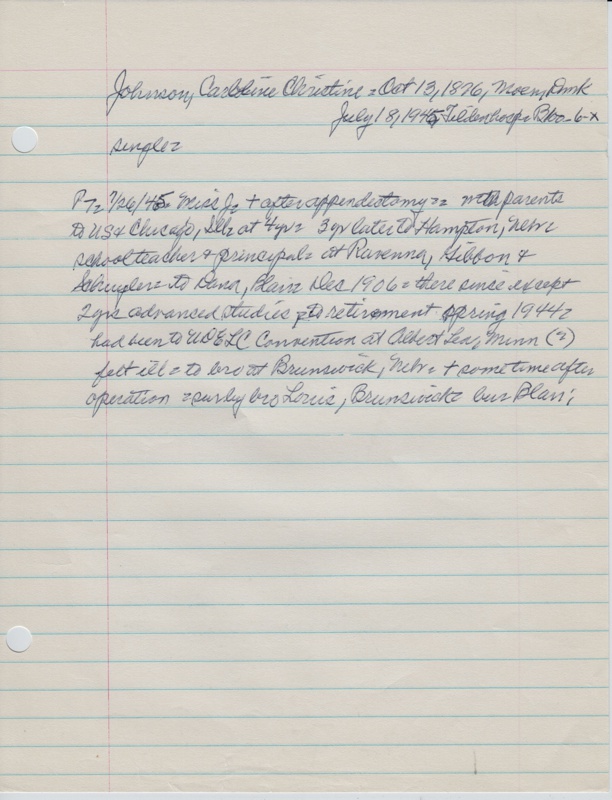 Johnson, Caroline Christine = Oct 13, 1876, Moen, Dmk
July 18, 1945, Tilden hosp =
single =
P 7 = 7/26/45 = Miss J = + after appendectomy = = with parents
to US & Chicago, Ill = at 4 yr = 3 yr later to Hampton, Nebr =
school teacher & principal = at Ravenna, Gibbon &
Schuyler = to Dana, Blair = Dec 1906 = there since except
2 yrs advanced studies = to retirement spring 1944 =
had been to UDELC Convention at Albert Lea, Minn (=)
felt ill = to bro at Brunswick, Nebr = + sometime after
operation = surv by bro Louis, Brunswick = bur Blair;